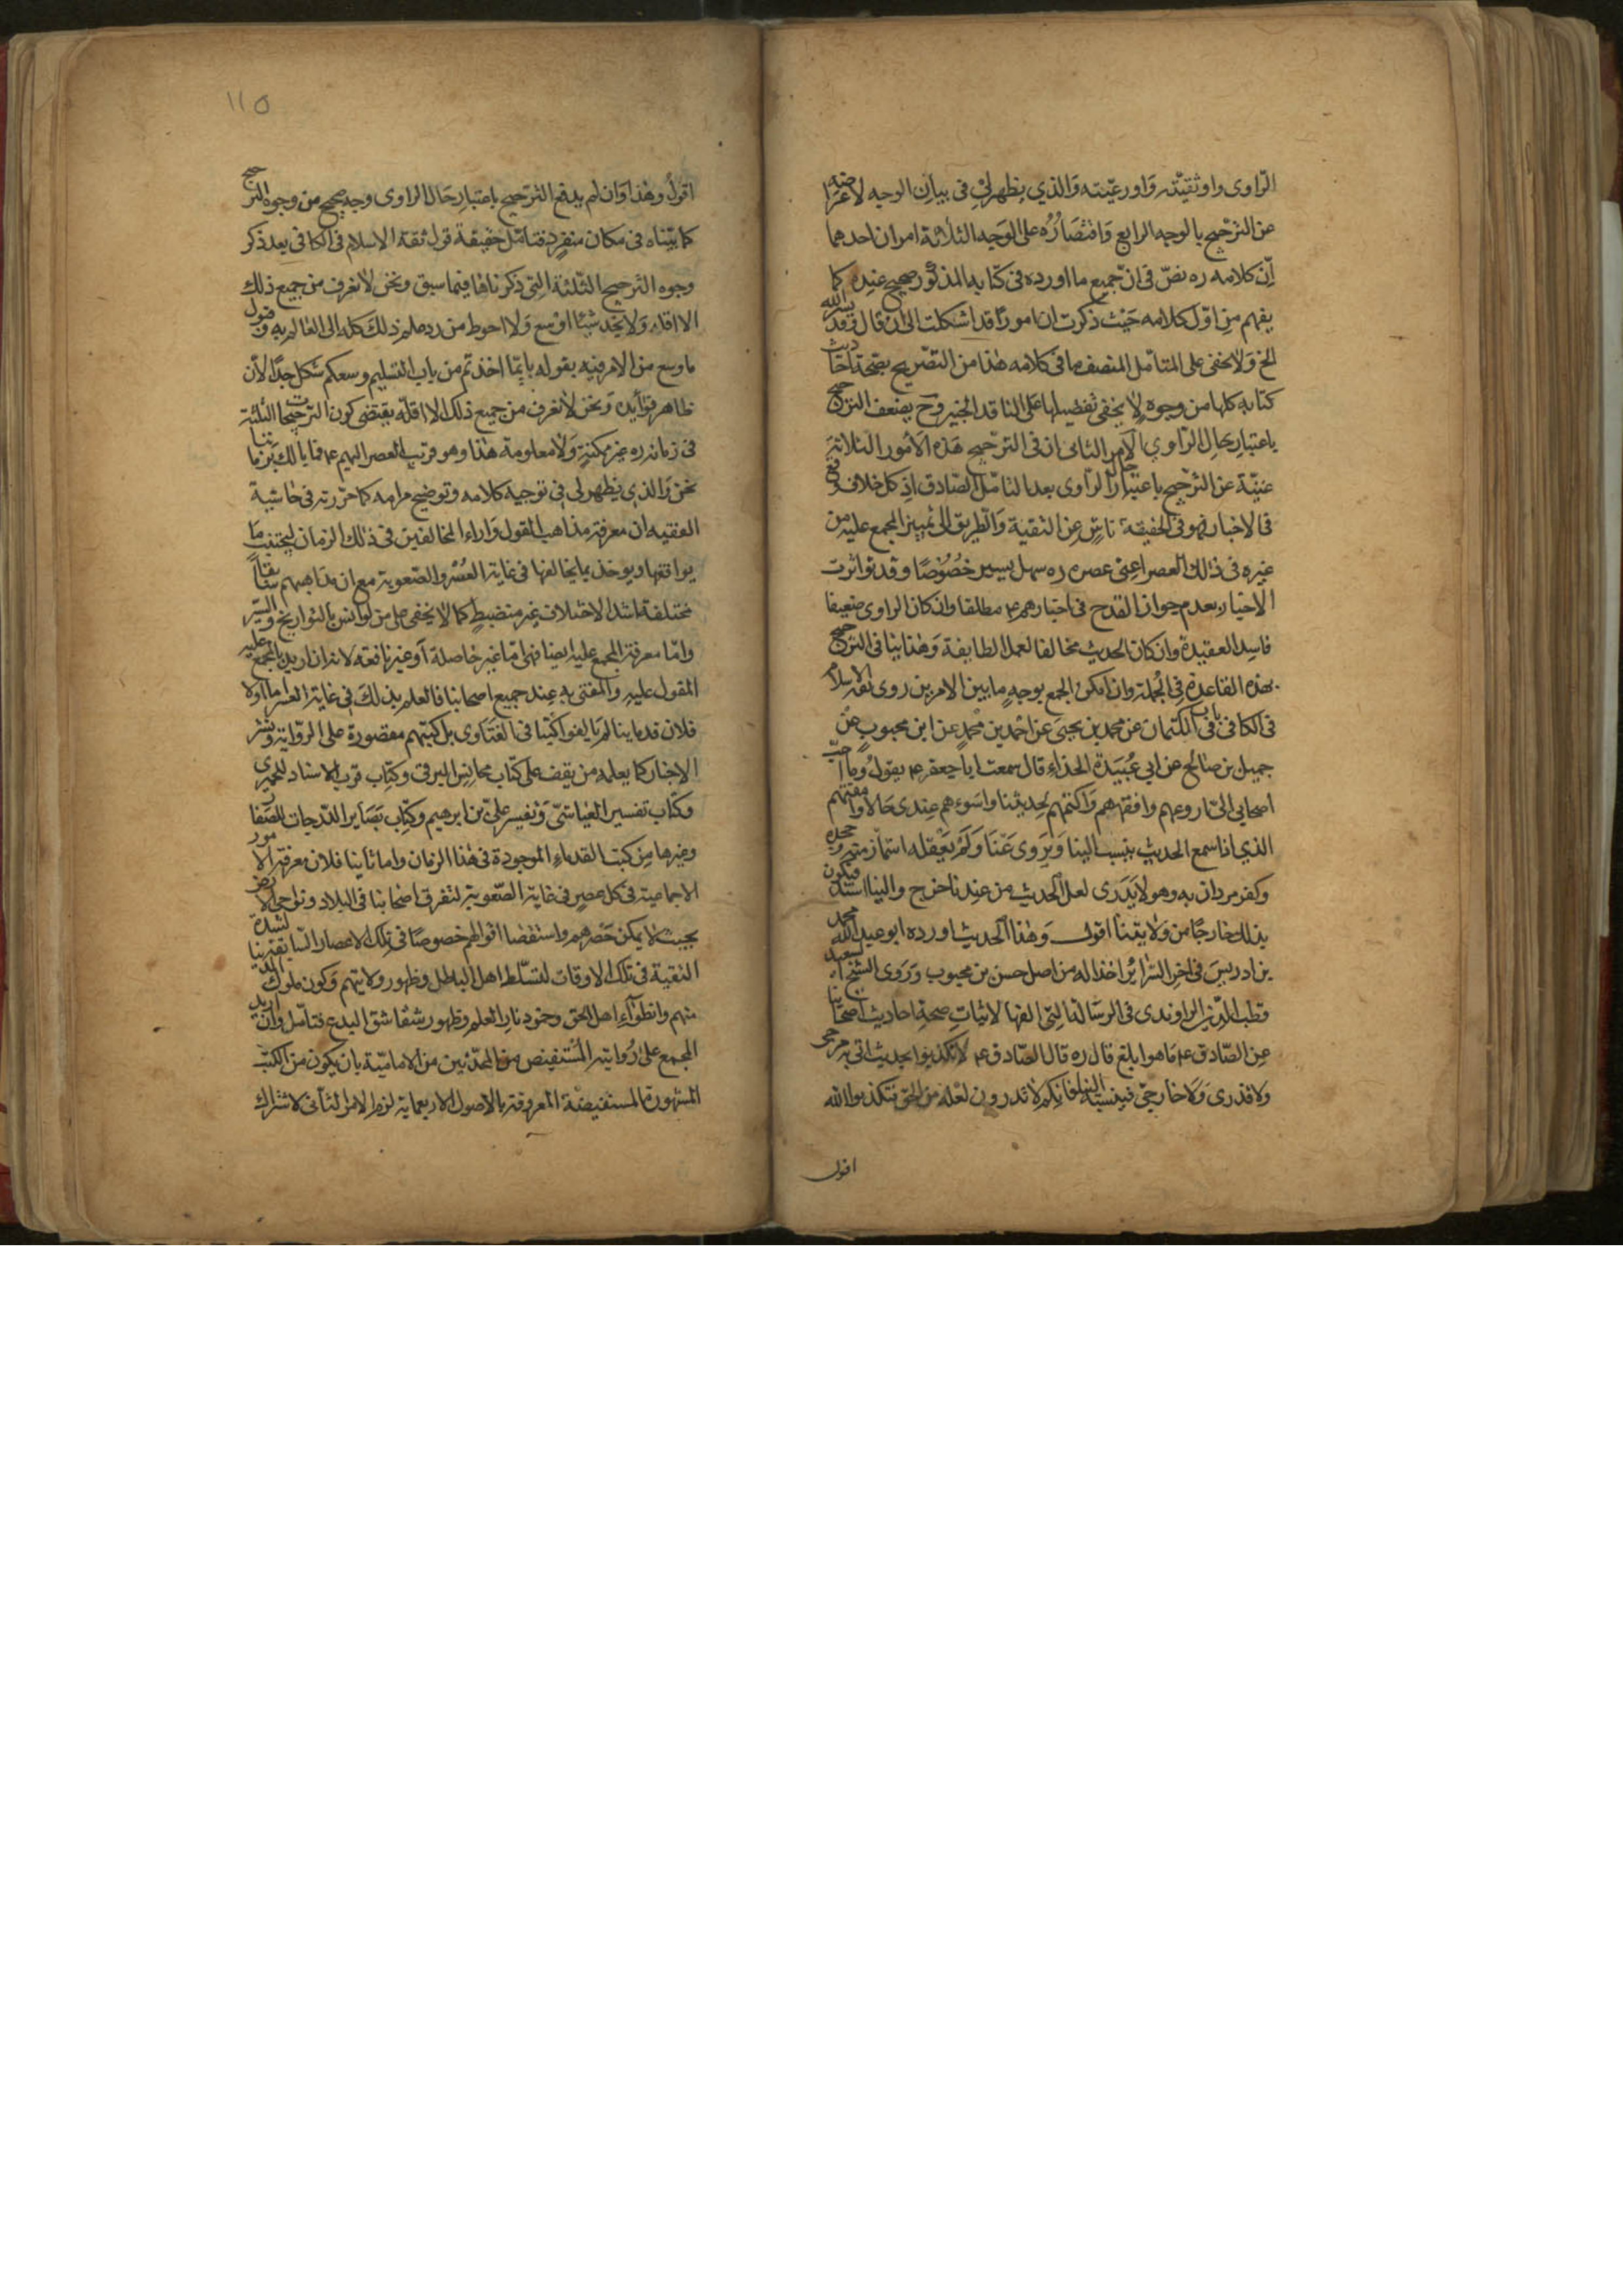 الرّاوى واوثقيّته واورعيّته والذي يظهر لى فى بيان الوجه لاعراضه
عن الترجيح بالوجه الرابع واقتصاره على الوجيه الثلاثة امران احدهما
انّ كلامه ره نصّ فى انّ جميع ما اورده فى كتابه المذكور صحيح عنده كما
يفهم من اوّل كلامه حيث ذكرت ان امورًا قد اشكلت الى ان قال وقد يسر الله
الخ ولا يخفى على المتأمّل المنصف ما فى كلامه هذا من التصريح بصحّة احاديث
كتابه كلها من وجوه لا يخفى تفصيلها على الناقد الخبير وح يضعف الترجيح
باعتبار حال الراوي الامر الثانى ان فى الترجيح هذه الامور الثلاثة
غنيّة عن الترجيح باعتبار حال الراوى بعد التامّل الصّادق اذ كل خلاف وقع
فى الاخبار فهو فى الحقيقة ناشٍ عن التقية والطريق الى تمييز المجمع عليه من
غيره فى ذلك العصر اعنى عصره ره سهل يسير خصُوصًا وقد تواترت
الاخبار بعدم جواز القدح فى اخبارهم ع مطلقا وان كان الراوى ضعيفا
فاسد العقيدة وان كان الحديث مخالفا لعمل الطايفة وهذا ينافى الترجيح
بهذه القاعدة فى الجُملة وان امكن الجمع بوجهٍ ما بين الامرين روى ثقة الاسلام
فى الكافى فى باب الكتمان عن محمد بن يحيى عن احمد بن محمد عن ابن محبوب عن
جميل بن صالح عن ابي عُبيدة الحذاء قال سمعت ابا جعفر ع يقول والله احبّ
اصحابي الىّ اروعهم وافقههم واكتمهم لحديثنا واسوءهم عندى حالا وامقتهم
الذي اذا سمع الحديث ينسب الينا ويروى عنّا ولم يعقله اشمأز منه وجحده
وكفر من دان به وهو لا يدرى لعل الحديث من عندنا خرج والينا اسند فيكون
بذلك خارجًا من ولايتنا اقول وهذا الحديث اورده ابو عبد الله محمد
بن ادريس فى اخر السّرائر اخذا له من اصل حسن بن محبوب وروى الشيخ السعيد
قطب الدّين الراوندى فى الرسالة التى الفها لاثبات صحة احاديث اصحابنا
عن الصّادق ع ما هو ابلغ قال ره قال الصّادق ع لا تكذبوا بحديث اتى به مرجى
ولا قدرى ولا خارجىّ فينسبه الينا فانكم لا تدرون لعلّه من الحقّ فتكذبوا الله
اقول
١١٥
اقولُ وهذا وان لم يدفع الترجيح باعتبار حال الراوى وجه صحيح من وجوه الترجيح
كما بيّناه فى مكان منفردٍ فتامّل حقيقة قول ثقة الاسلام فى الكافى بعد ذكر
وجوه الترجيح الثلثة التى ذكرناها فيما سبق ونحن لا نعرف من جميع ذلك
الا اقله ولا نجد شيئًا اوسع ولا احوط من رد علم ذلك كله الى العالم ع وقبول
ما وسع من الامر فيه بقوله بايّما اخذتم من باب التسليم وسعكم مشكل جدًا لأن
ظاهر قوله ونحن لا نعرف من جميع ذلك الا اقلّه يقتضى كون الترجيحات الثلثة
فى زمانه ره غير ممكنة ولا معلومة هذا وهو قريب العصر اليهم ع فما بالك بزماننا
نحن والذي يظهر لى فى توجيه كلامه وتوضيح مرامه كما حرّرته فى حاشية
الفقيه ان معرفة مذاهب المقول واراء المخالفين فى ذلك الزمان ليجتنب ما
يوافقها ويوخذ بما يخالفها فى غاية العُسْر والصّعوبة مع ان مذاهبهم
مختلفة اشد الاختلاف غير منضبطٍ كما لا يخفى على من له انس بالتواريخ والسّير
وامّا معرفة المجمع عليه ايضا فهى امّا غير حاصلة أو غير نافعة لانه ان اريد بالمجمع عليه
المقول عليه والمفتى به عند جميع اصحابنا فالعلم بذلك فى غاية العسر اما اولا
فلان قدماءنا لم يالفوا كتبا فى الفتاوى بل كتبهم مقصورة على الرّواية ونشر
الاخبار كما يعلمه من يقف على كتاب محاسن البرقى وكتاب قرب الاسناد للحميرى
وكتاب تفسير العياشىّ وتفسير علىّ بن ابرهيم وكتاب بصاير الدّرجات للصّفار
وغيرها من كتب القدماء الموجودة فى هذا الزمان واما ثانيا فلان معرفة الامور
الاجماعية فى كل عصرٍ فى غاية الصّعوبة لتفرق اصحابنا فى البلاد ونواحى الارض
بحيث لا يمكن حصرهم واستقصا اقوالهم خصوصًا فى تلك الاعصار السّابقة لشدة
التقية فى تلك الاوقات لتسلّط اهل الباطل وظهور ولايتهم وكون ملوك
منهم وانطواء اهل الحق وخمود نار العلم وظهور شقاشق البدع فتامّل وان اريد
المجمع على رُوايته المستفيض من المحدّثين من الاماميّة بان يكون من الكتبِ
المشهورة المستفيضة المعروفة بالاصول الاربعماية لزم الامر الثانى لاشتراك